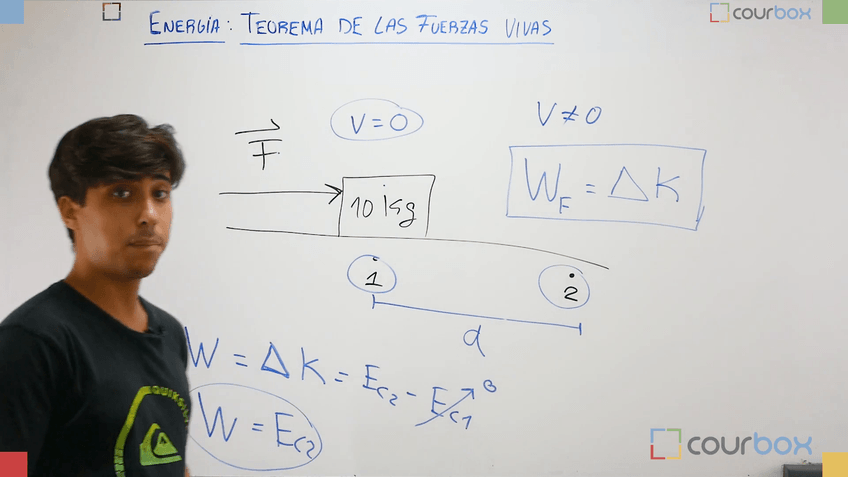 courbox
ENERGÍA: TEOREMA DE LAS FUERZAS VIVAS
V = 0
V ≠ 0
F
W_F = Δ K
10 kg
1
2
d
W = Δ K = E_C2 - E_C1 0
W = E_C2
QUIKSIL
courbox